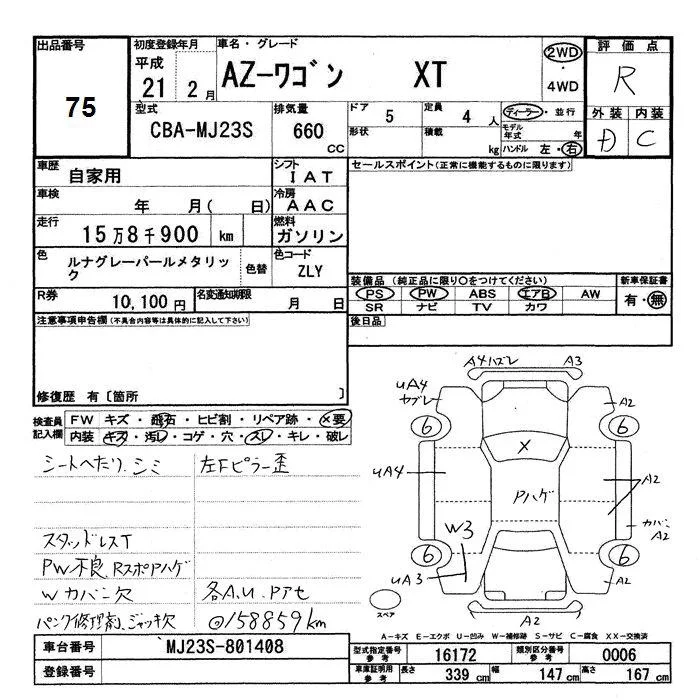 出品番号
75
初度登録年月
平成
21 年 2 月
車名・グレード
AZ-ワゴン XT
2WD
・
4WD
評価点
R
外装 内装
D C
型式
CBA-MJ23S
排気量
660 CC
ドア 5
定員 4 人
形状
積載 kg
ディーラー・並行
モデル年式 年
ハンドル 左・右
車歴 自家用
シフト IAT
セールスポイント(正常に機能するものに限ります)
車検 年 月( 日)
冷房 AAC
走行 15万8千900 km
燃料 ガソリン
色 ルナグレーパールメタリック
色替
色コード ZLY
装備品 (純正品に限り○をつけてください)
新車保証書
PS PW ABS エアB AW
有・無
SR ナビ TV カワ
R券 10,100円
名変通知期限 月 日
後日品
注意事項申告欄(不具合内容等は具体的に記入して下さい)
修復歴 有〔箇所 〕
検査員記入欄
FW キズ・飛石・ヒビ割・リペア跡・×要
内装 キズ・汚レ・コゲ・穴・スレ・キレ・破レ
シートヘたり、シミ 左Fピラー歪
スタッドレスT
PW不良、Rスポアハゲ
Wカバー欠 各A.U.Pアセ
パンク修理剤、ジャッキ欠 ◎158859km
A4ハズレ A3
UA4
ヤブレ
A2
6 6
X
UA4
Pハゲ
A2
W3
カバーA2
6 6
UA3
A2
スペア
A2
A-キズ E-エクボ U-凹み W-補修跡 S-サビ C-腐食 XX-交換済
車台番号 MJ23S-801408
登録番号
型式指定番号 参考 16172
類別区分番号 参考 0006
車庫証明用 参考 長さ 339 cm 幅 147 cm 高さ 167 cm